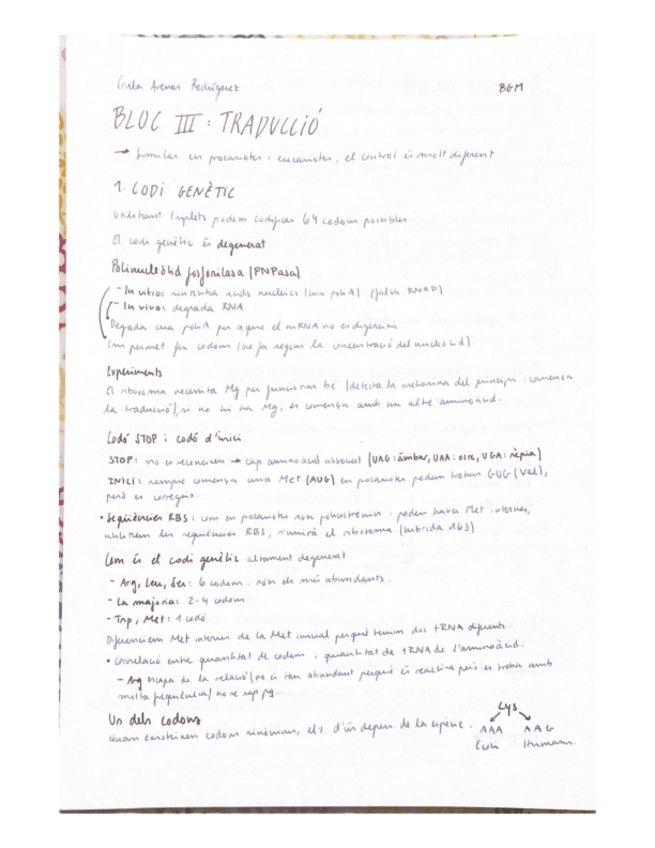 Carla Arenas Rodríguez BGM
BLOC III: TRADUCCIÓ
→ Similar en procariotes i eucariotes, el control és molt diferent
1. CODI GENÈTIC
Utilitzant triplets podem codificar 64 codons possibles.
El codi genètic és degenerat
Polinucleòtid fosforilasa (PNPasa)
- In vitro: sintetitza àcids nucleics (una poliA) (falsa RNAP)
- In vivo: degrada RNA
Degrada cua poliA per a que el mRNA no es digereixi
Ens permet fer codons (ho fa segons la concentració del nucleòtid)
Experiments
El ribosoma necessita Mg per funcionar bé (detecta la metionina del principi i comença
la traducció), si no hi ha Mg, es comença amb un altre aminoàcid.
Codó STOP i codó d'inici
STOP: no es reconeixen → cap aminoàcid associat (UAG: ámbar, UAA: ocre, UGA: sèpia)
INICI: sempre comença una Met (AUG) en procariotes podem trobar GUG (Val),
però es corregeix.
• Seqüències RBS: com en procariotes són policistrònics i poden haver Met internes,
utilitzem les seqüències RBS, s'unirà el ribosoma. (híbrida 16S)
Com és el codi genètic altament degenerat
- Arg, Leu, Ser: 6 codons. són els més abundants.
- La majoria: 2-4 codons
- Trp, Met: 1 codó
Diferenciem Met internes de la Met inicial perquè tenim dos tRNA diferents.
• Correlació entre quantitat de codons i quantitat de tRNA de l'aminoàcid.
- Arg escapa de la relació (no és tan abundant perquè és reactiva però es troba amb
molta freqüència) no se sap pq.
Ús dels codons
Quan existeixen codons sinònims, el % d'ús depen de la espècie.
Lys
AAA AAG
E.coli Humans.